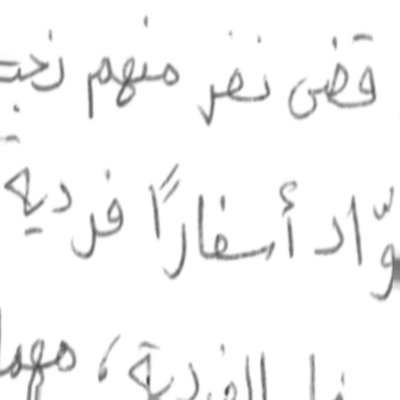 قضى نفر منهم نخبه
وّاد أسفارًا فردية
الفردية، مهما